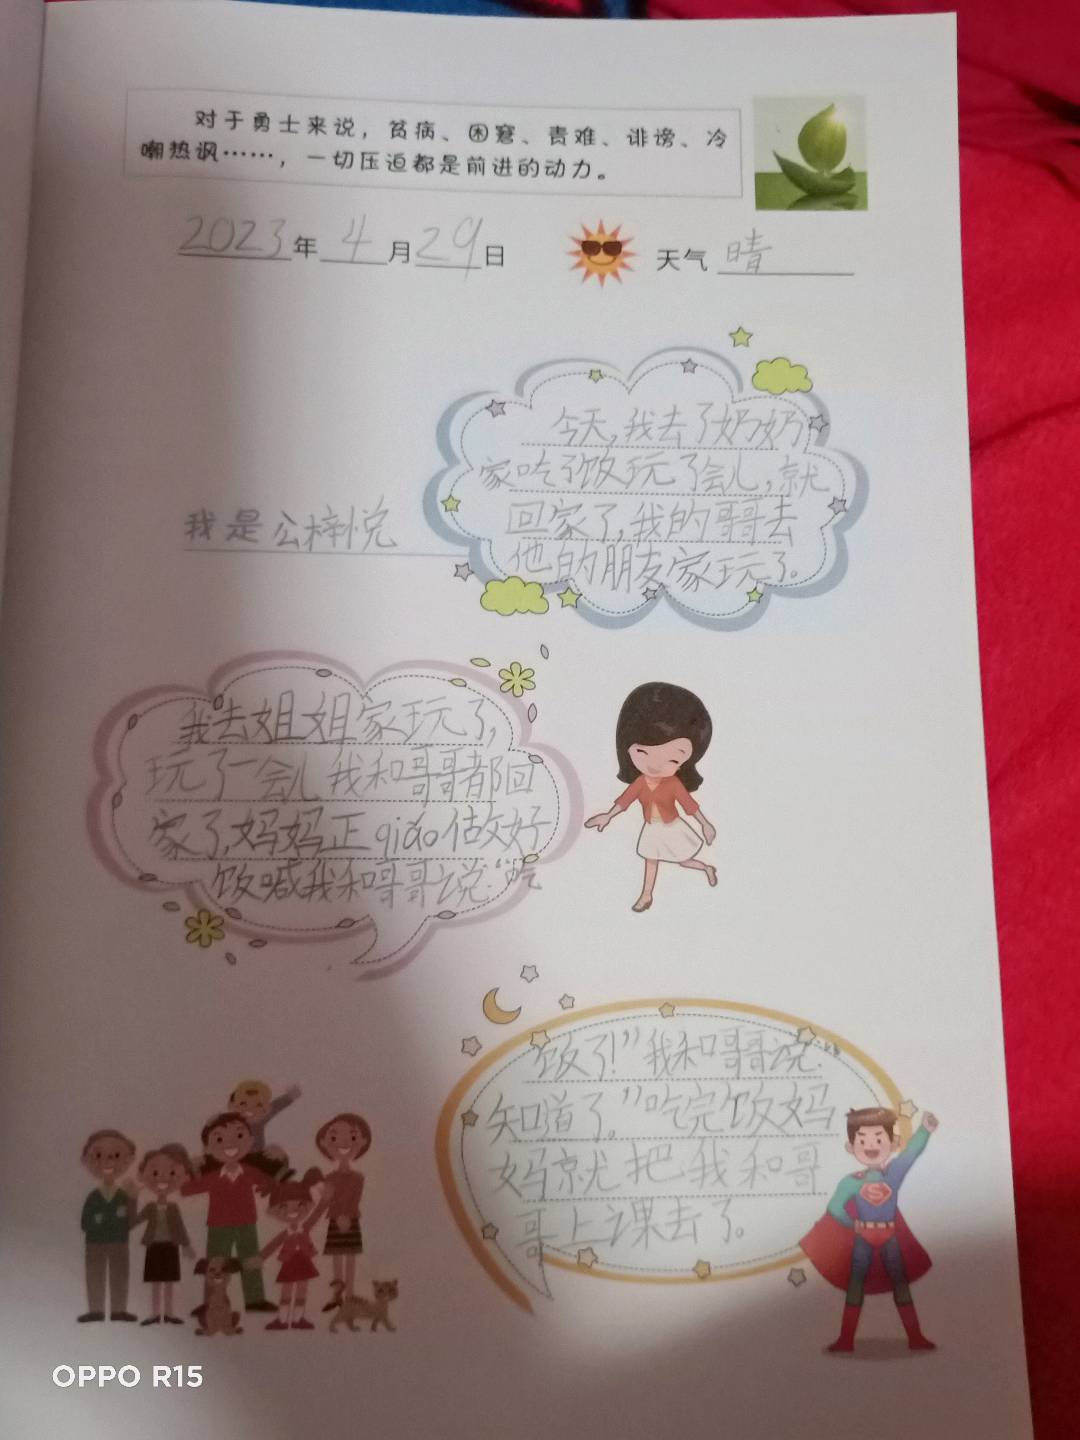 对于勇士来说，贫病、困窘、责难、诽谤、冷
嘲热讽……，一切压迫都是前进的动力。
2023年4月29日
天气 晴
我是公梓悦
今天,我去了奶奶
家吃了饭玩了会儿,就
回家了,我的哥哥去
他的朋友家玩了。
我去姐姐家玩了,
玩了一会儿我和哥哥都回
家了,妈妈正qiǎo做好
饭喊我和哥哥说:“吃
饭了!”我和哥哥说:
知道了。”吃完饭妈
妈就把我和哥
哥上课去了。
S
OPPO R15